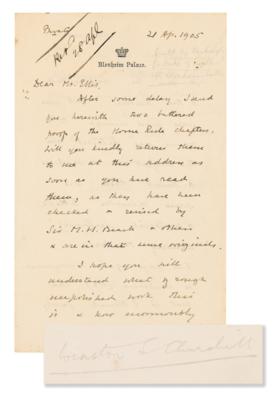 Private
Rec 28 Apl
21 Ap. 1905
Blenheim Palace.
Dear Mr. Ellis,
After some delay I send
you herewith two battered
proofs of the Home Rule chapters.
Will you kindly return them
to me at this address as
soon as you have read
them, as they have been
checked & revised by
Sir M. H. Beach & others
& are in that sense originals.
I hope you will
understand what rough
unpolished work this
is & how enormously
Winston S. Churchill